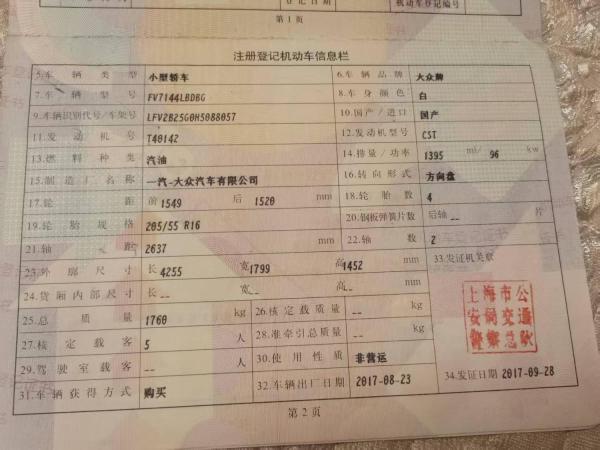 登记日期
机动车登记编号
第1页
注册登记机动车信息栏
5.车辆类型 小型轿车 6.车辆品牌 大众牌
7.车辆型号 FV7144LBDBG 8.车身颜色 白
9.车辆识别代号/车架号 LFV2B25G0H5088057 10.国产/进口 国产
11.发动机号 T40142 12.发动机型号 CST
13.燃料种类 汽油 14.排量/功率 1395 ml/ 96 kw
15.制造厂名称 一汽-大众汽车有限公司 16.转向形式 方向盘
17.轮距 前 1549 后 1520 mm 18.轮胎数 4
19.轮胎规格 205/55 R16 20.钢板弹簧片数 后轴 -- 片
21.轴距 2637 mm 22.轴数 2
23.外廓尺寸 长 4255 宽 1799 高 1452 mm 33.发证机关章
24.货厢内部尺寸 长 -- 宽 -- 高 -- mm
25.总质量 1760 kg 26.核定载质量 -- kg
27.核定载客 5 人 28.准牵引总质量 -- kg
29.驾驶室载客 -- 人 30.使用性质 非营运
31.车辆获得方式 购买 32.车辆出厂日期 2017-08-23 34.发证日期 2017-09-28
上海市公
安局交通
警察总队
第2页